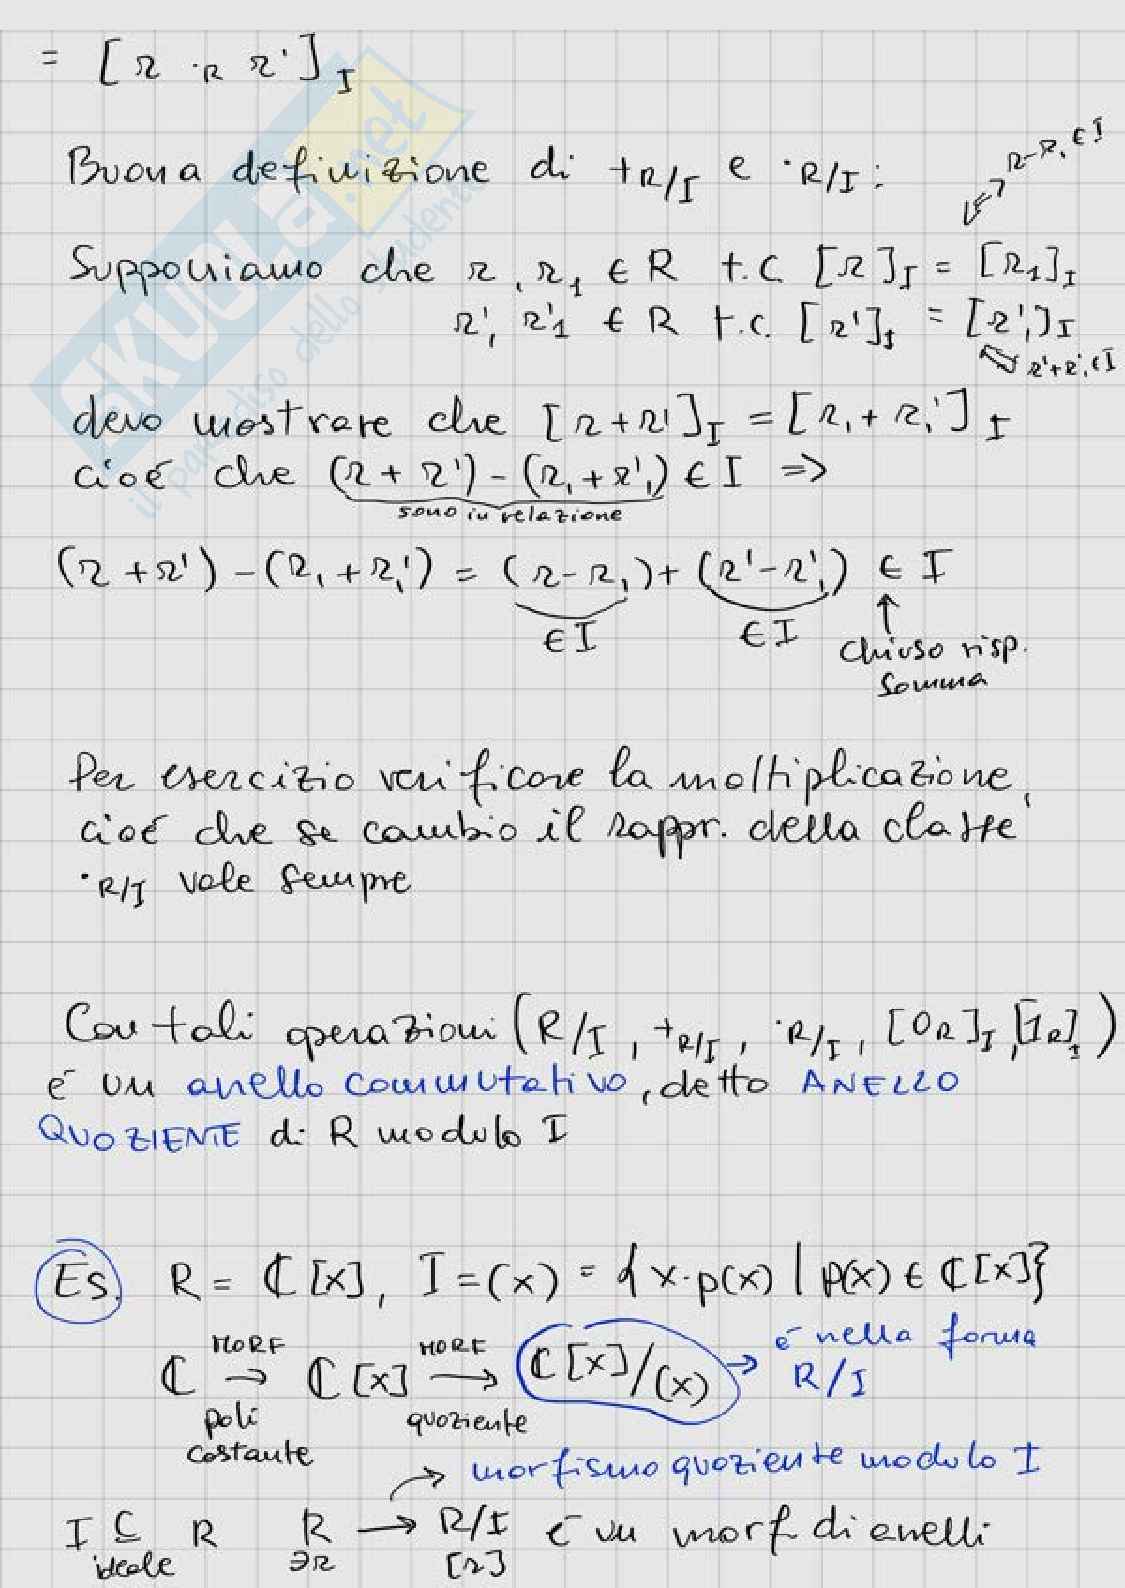 = [r ·R r']I
Buona definizione di +R/I e ·R/I :
r-r1 ∈ I
Supponiamo che r, r1 ∈ R t.c. [r]I = [r1]I
r', r'1 ∈ R t.c. [r']I = [r'1]I
r'+r'1 ∈ I
devo mostrare che [r+r']I = [r1+r1']I
cioé che (r+r')-(r1+r'1) ∈ I =>
sono in relazione
(r+r')-(r1+r1') = (r-r1)+(r'-r'1) ∈ I
∈ I ∈ I ↑
chiuso risp.
somma
Per esercizio verificare la moltiplicazione,
cioé che se cambio il rappr. della classe
·R/I vale sempre
Con tali operazioni (R/I, +R/I, ·R/I, [0R]I, [1R]I)
é un anello commutativo, detto ANELLO
QUOZIENTE di R modulo I
Es. R = ℂ[x], I=(x) = {x·p(x) | p(x) ∈ ℂ[x]}
MORF MORF é nella forma
ℂ → ℂ[x] → ℂ[x]/(x) → R/I
poli quoziente
costante
→ morfismo quoziente modulo I
I ⊆ R R → R/I é un morf di anelli
ideale ∋r [r]
SKUOLA.net
il paradiso dello studente